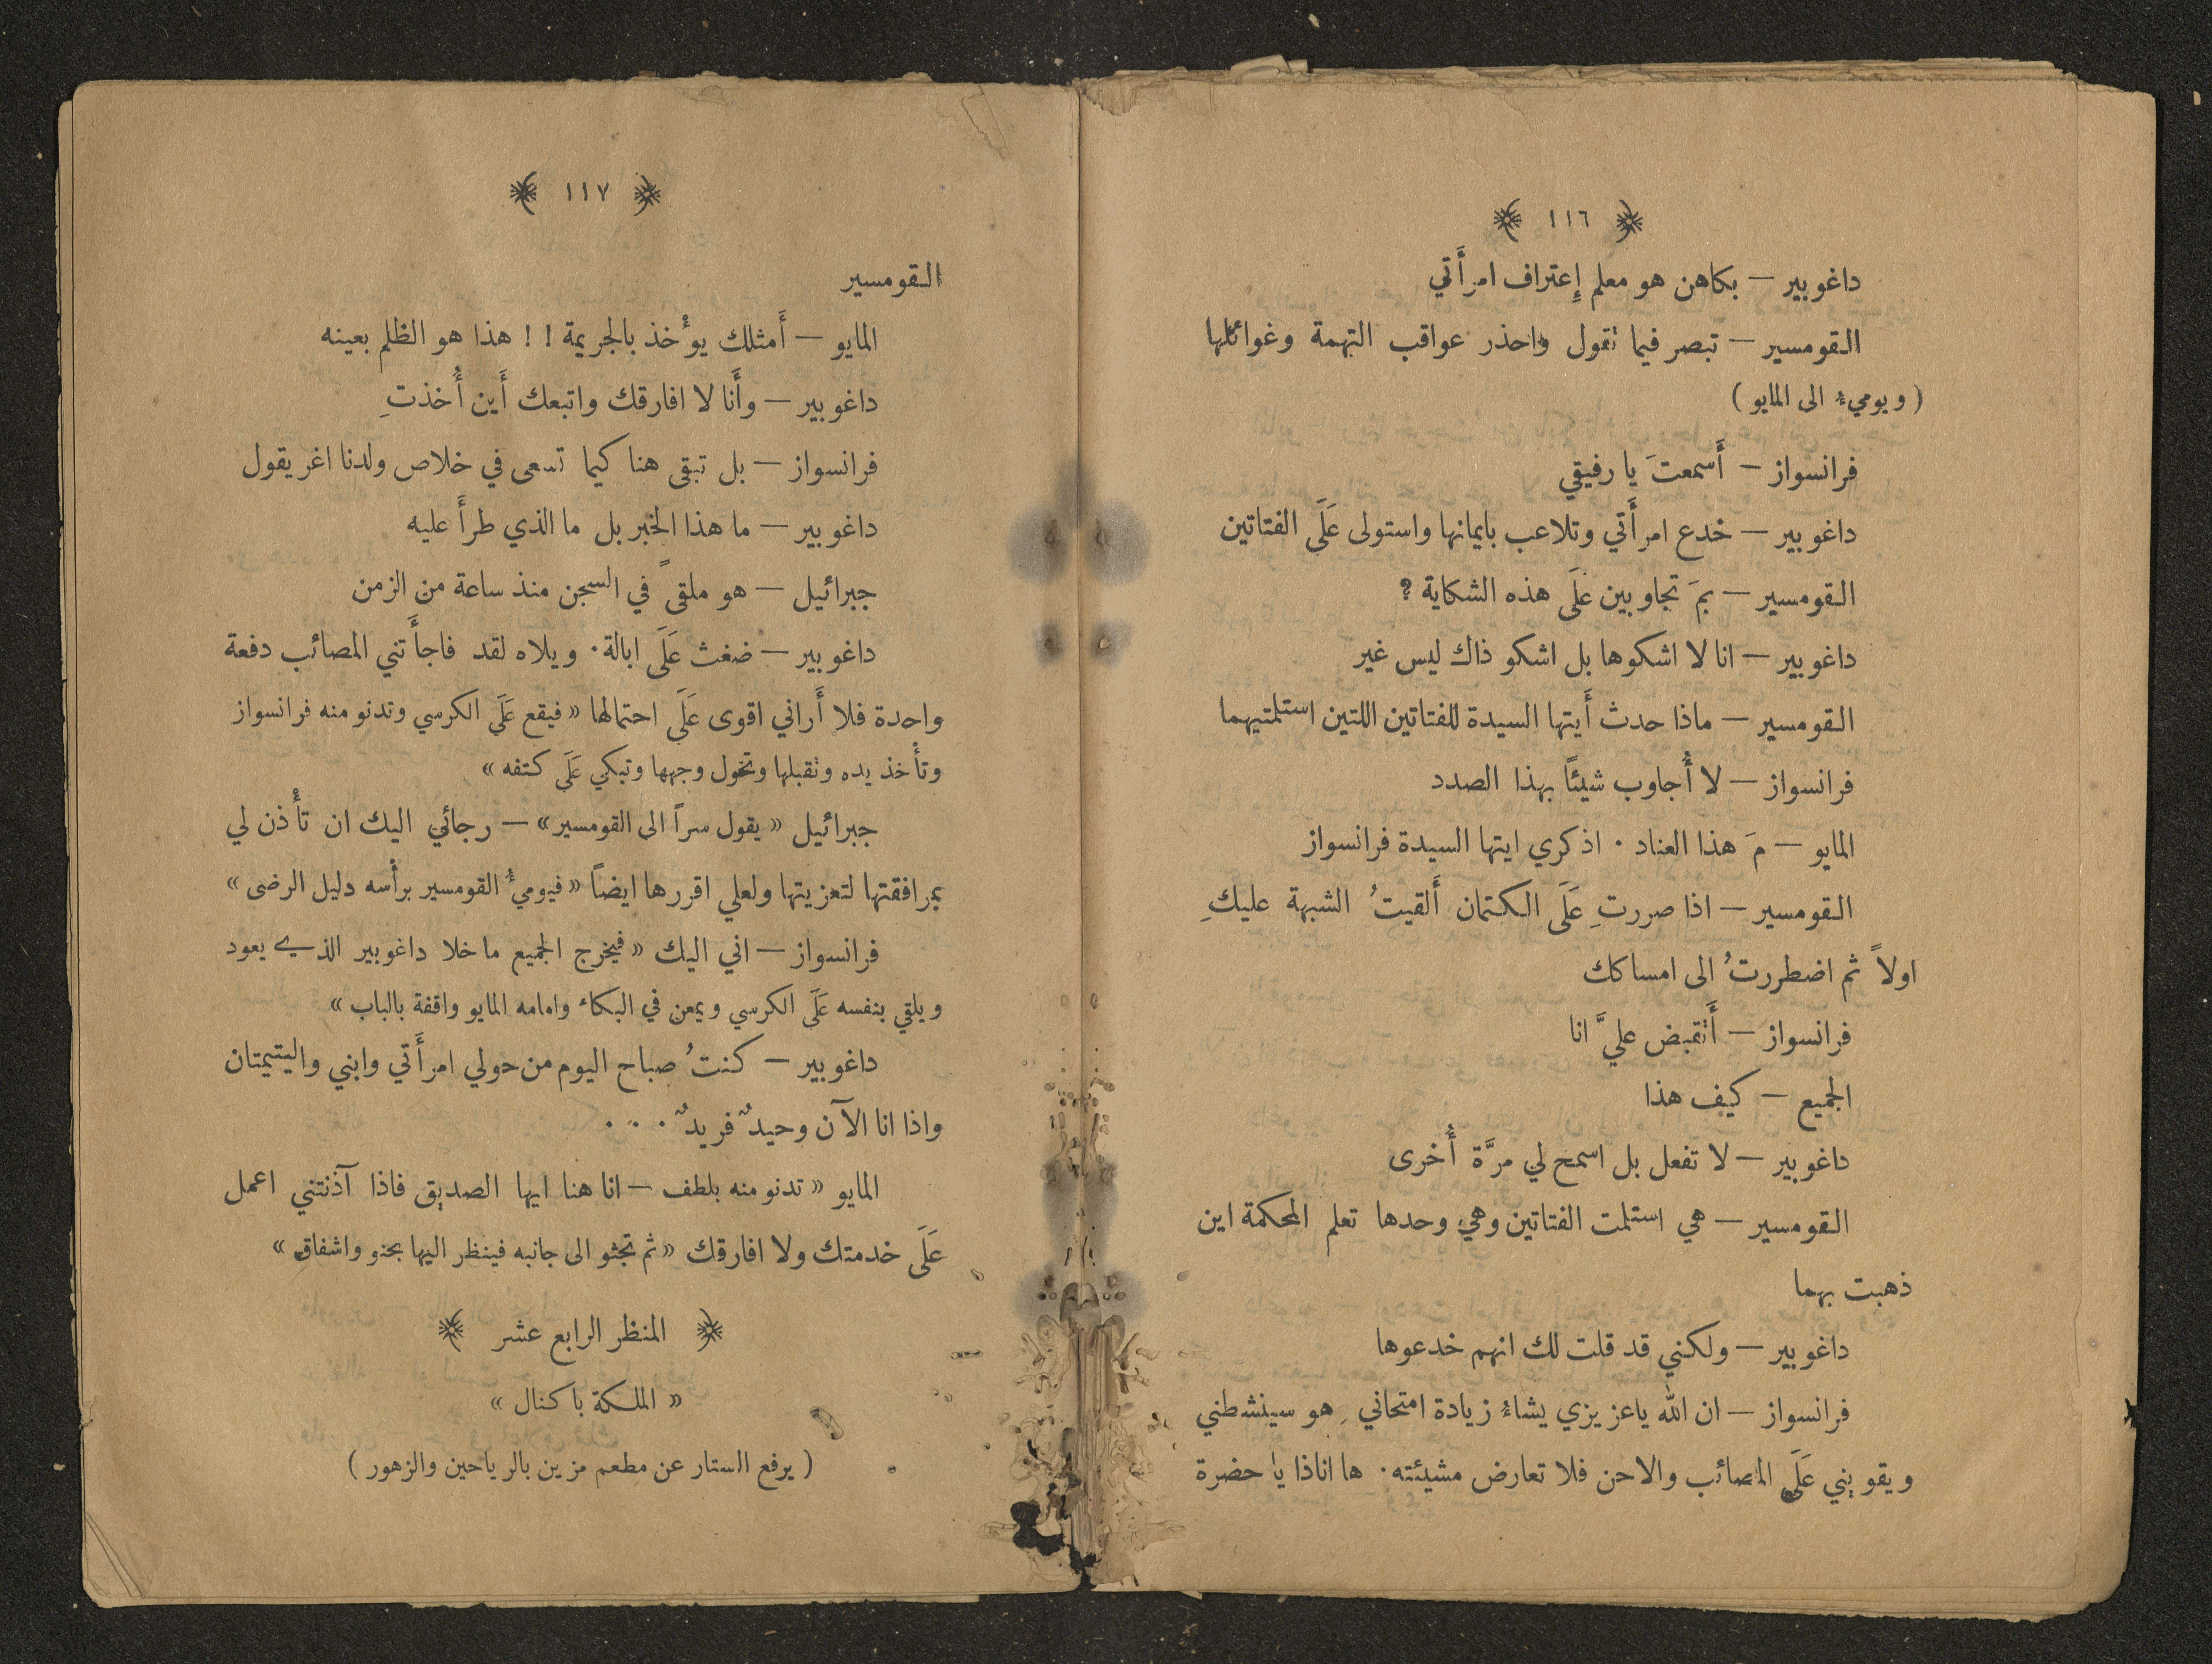 ﴿ ١١٦ ﴾
داغوبير — بكاهن هو معلم إِعتراف امرأَتي
القومسير — تبصر فيما تقول واحذر عواقب التهمة وغوائلها
( ويوميءُ الى المايو )
فرانسواز — أَسمعتَ يا رفيقي
داغوبير — خدع امرأَتي وتلاعب بايمانها واستولى عَلَى الفتاتين
القومسير — بمَ تجاوبين عَلَى هذه الشكاية ؟
داغوبير — انا لا اشكوها بل اشكو ذاك ليس غير
القومسير — ماذا حدث أَيتها السيدة للفتاتين اللتين استلمتيهما
فرانسواز — لا أُجاوب شيئًا بهذا الصدد
المايو — مَ هذا العناد . اذكري ايتها السيدة فرانسواز
القومسير — اذا صررتِ عَلَى الكتمان أَلقيتُ الشبهة عليكِ
اولاً ثم اضطررتُ الى امساكك
فرانسواز — أَتقبض عليَّ انا
الجميع — كيف هذا
داغوبير — لا تفعل بل اسمح لي مرَّة أُخرى
القومسير — هي استلمت الفتاتين وهي وحدها تعلم المحكمة اين
ذهبت بهما
داغوبير — ولكني قد قلت لك انهم خدعوها
فرانسواز — ان الله ياعزيزي يشاءُ زيادة امتحاني . هو سينشطني
ويقويني عَلَى المصائب والاحن فلا تعارض مشيئته . ها اناذا يا حضرة
﴿ ١١٧ ﴾
القومسير
المايو — أَمثلك يوْخذ بالجريمة ! ! هذا هو الظلم بعينه
داغوبير — وأَنا لا افارقك واتبعك أَين أُخذتِ
فرانسواز — بل تبقى هنا كيما تسعى في خلاص ولدنا اغريقول
داغوبير — ما هذا الخبر بل ما الذي طرأَ عليه
جبرائيل — هو ملقىً في السجن منذ ساعة من الزمن
داغوبير — ضغث عَلَى ابالة . ويلاه لقد فاجأَتني المصائب دفعة
واحدة فلا أَراني اقوى عَلَى احتمالها « فيقع عَلَى الكرسي وتدنو منه فرانسواز
وتأْخذ يده وتقبلها وتحول وجهها وتبكي عَلَى كتفه »
جبرائيل « يقول سراً الى القومسير » — رجائي اليك ان تأْذن لي
بمرافقتها لتعزيتها ولعلي اقررها ايضاً « فيوميءُ القومسير برأْسه دليل الرضى »
فرانسواز — اني اليك « فيخرج الجميع ما خلا داغوبير الذي يعود
ويلقي بنفسه عَلَى الكرسي ويمعن في البكاء وامامه المايو واقفة بالباب »
داغوبير — كنتُ صباح اليوم من حولي امرأَتي وابني واليتيمتان
واذا انا الآن وحيدٌ فريدٌ . . .
المايو « تدنو منه بلطف — انا هنا ايها الصديق فاذا آذنتني اعمل
عَلَى خدمتك ولا افارقك « ثم تجثو الى جانبه فينظر اليها بحنو واشفاق »
﴿ المنظر الرابع عشر ﴾
« الملكة باكنال »
( يرفع الستار عن مطعم مزين بالرياحين والزهور )